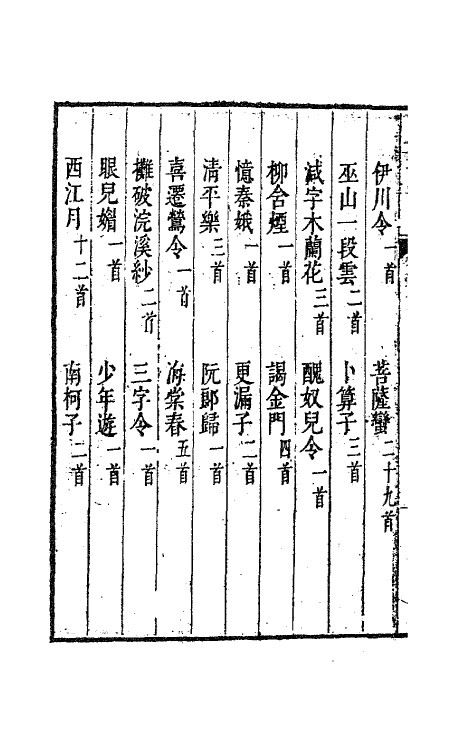 伊川令一首　菩薩蠻二十九首
巫山一段雲二首　卜算子三首
減字木蘭花三首　醜奴兒令一首
柳含煙一首　謁金門四首
憶秦娥一首　更漏子二首
清平樂三首　阮郎歸一首
喜遷鶯令一首　海棠春五首
攤破浣溪紗二首　三字令一首
眼兒媚一首　少年遊一首
西江月十二首　南柯子二首